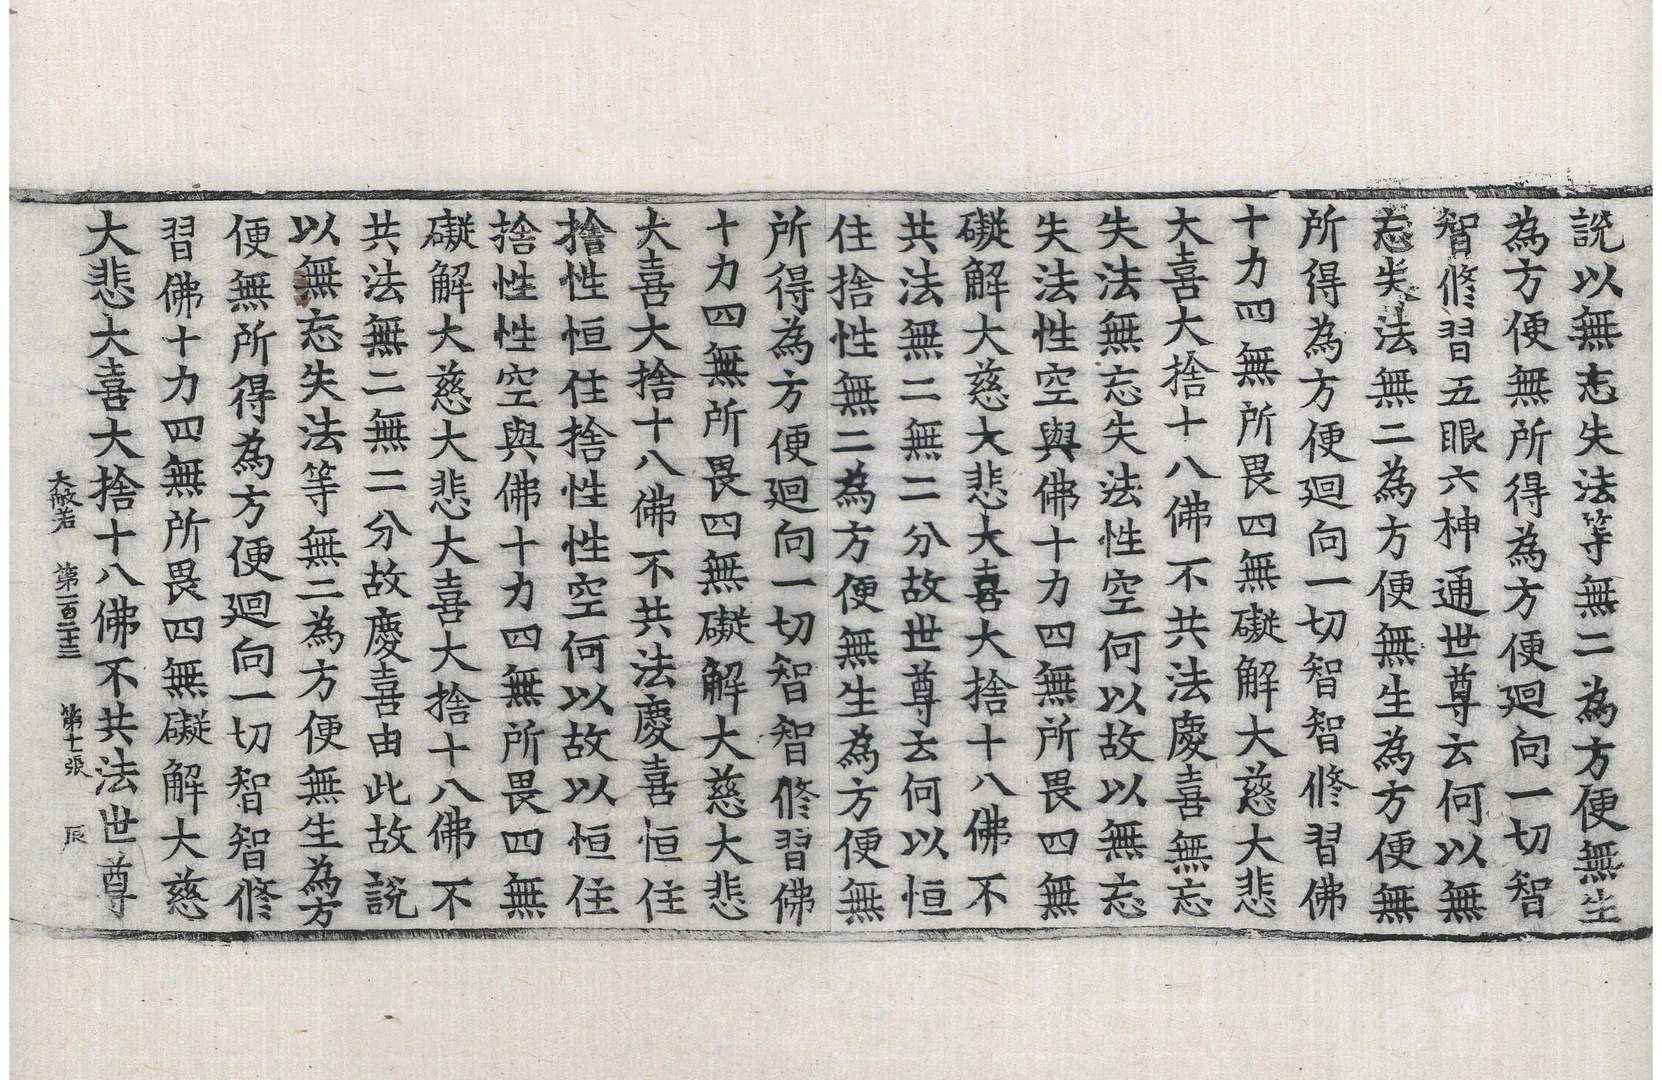 說以無忘失法等無二為方便無生
為方便無所得為方便廻向一切智
智修習五眼六神通世尊云何以無
忘失法無二為方便無生為方便無
所得為方便廻向一切智智修習佛
十力四無所畏四無礙解大慈大悲
大喜大捨十八佛不共法慶喜無忘
失法無忘失法性空何以故以無忘
失法性空與佛十力四無所畏四無
礙解大慈大悲大喜大捨十八佛不
共法無二無二分故世尊云何以恒
住捨性無二為方便無生為方便無
所得為方便廻向一切智智修習佛
十力四無所畏四無礙解大慈大悲
大喜大捨十八佛不共法慶喜恒住
捨性恒住捨性性空何以故以恒住
捨性性空與佛十力四無所畏四無
礙解大慈大悲大喜大捨十八佛不
共法無二無二分故慶喜由此故說
以無忘失法等無二為方便無生為方
便無所得為方便廻向一切智智修
習佛十力四無所畏四無礙解大慈
大悲大喜大捨十八佛不共法世尊
大般若 第一百二十三 第十一張 辰